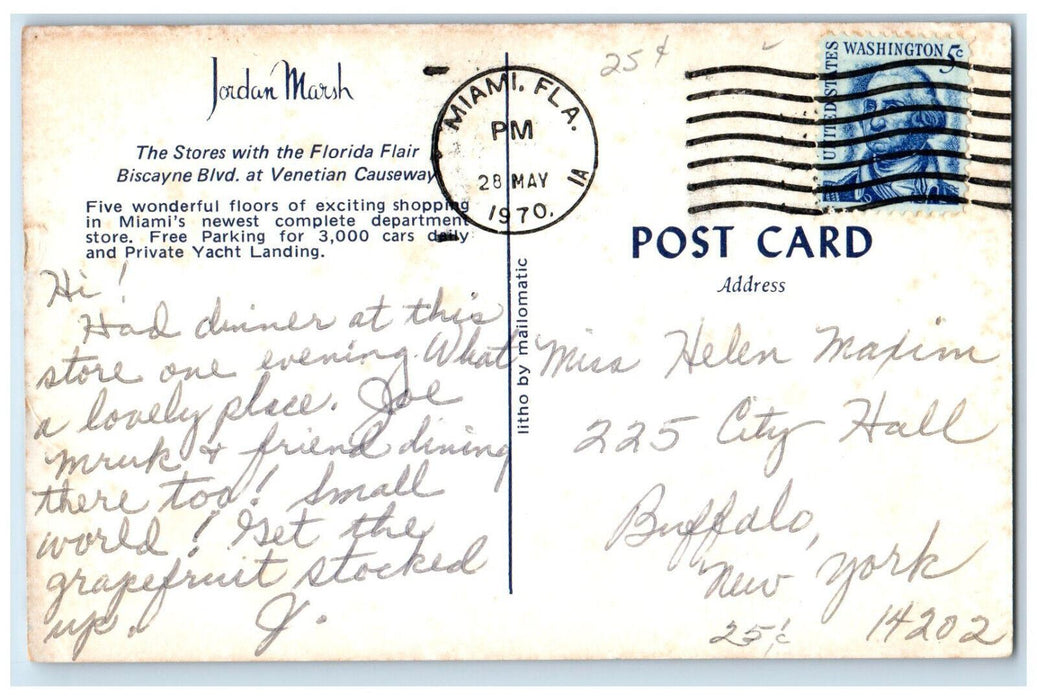 Jordan Marsh
The Stores with the Florida Flair
Biscayne Blvd. at Venetian Causeway
Five wonderful floors of exciting shopping
in Miami's newest complete department
store. Free Parking for 3,000 cars daily
and Private Yacht Landing.
Hi!
Had dinner at this
store one evening. What
a lovely place. Joe
Mruk & friend dining
there too! Small
world! Get the
grapefruit stocked
up. J.
litho by mailomatic
MIAMI, FLA.
PM
28 MAY
1970
1A
25¢
UNITED STATES
WASHINGTON 5c
POST CARD
Address
Miss Helen Maxim
225 City Hall
Buffalo,
New York
14202
25¢